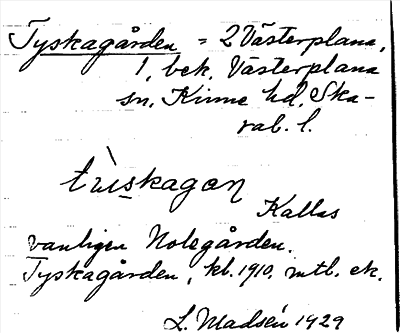 Tyskagården = 2 Västerplana,
1, bek. Västerplana
sn, Kinne hd, Ska-
rab. l.
tỳskagɑn
Kallas
vanligen Nolegården.
Tyskagården, kb. 1910, mtl. ek.
L. Madsén 1929